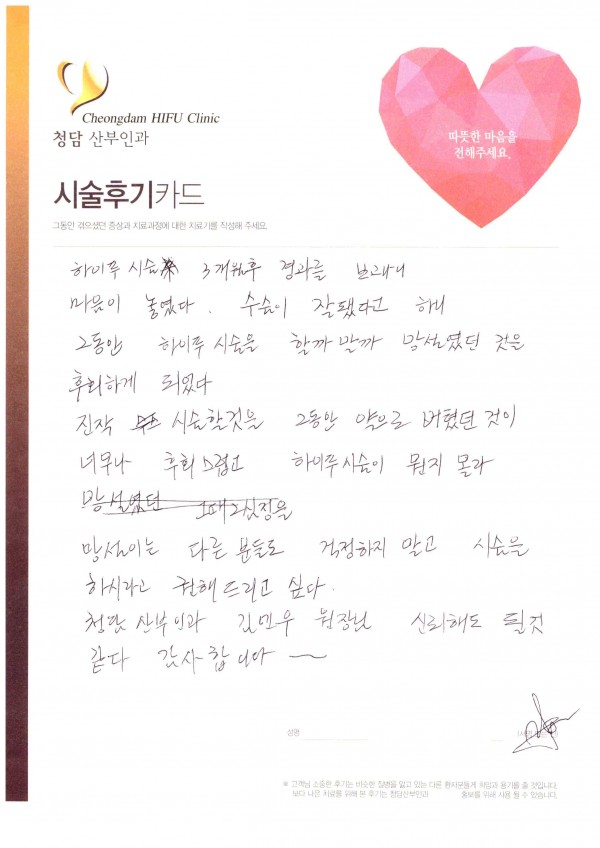 Cheongdam HIFU Clinic
청담 산부인과
따뜻한 마음을
전해주세요.
시술후기카드
그동안 겪으셨던 증상과 치료과정에 대한 치료기를 작성해 주세요.
하이푸 시술 3개월후 경과를 보고나니
마음이 놓였다. 수술이 잘됐다고 하니
그동안 하이푸 시술을 할까 말까 망설였던 것을
후회하게 되었다
진작 시술할것을 그동안 약으로 버텼던 것이
너무나 후회스럽고 하이푸시술이 뭔지 몰라
망설였던 그때 심정을
망설이는 다른 분들도 걱정하지 말고 시술을
하시라고 권해 드리고 싶다.
청담 산부인과 김민우 원장님 신뢰해도 될것
같다 감사합니다 ~
성명
※ 고객님 소중한 후기는 비슷한 질병을 앓고 있는 다른 환자분들께 희망과 용기를 줄 것입니다.
보다 나은 치료를 위해 본 후기는 청담산부인과 홍보를 위해 사용 될 수 있습니다.